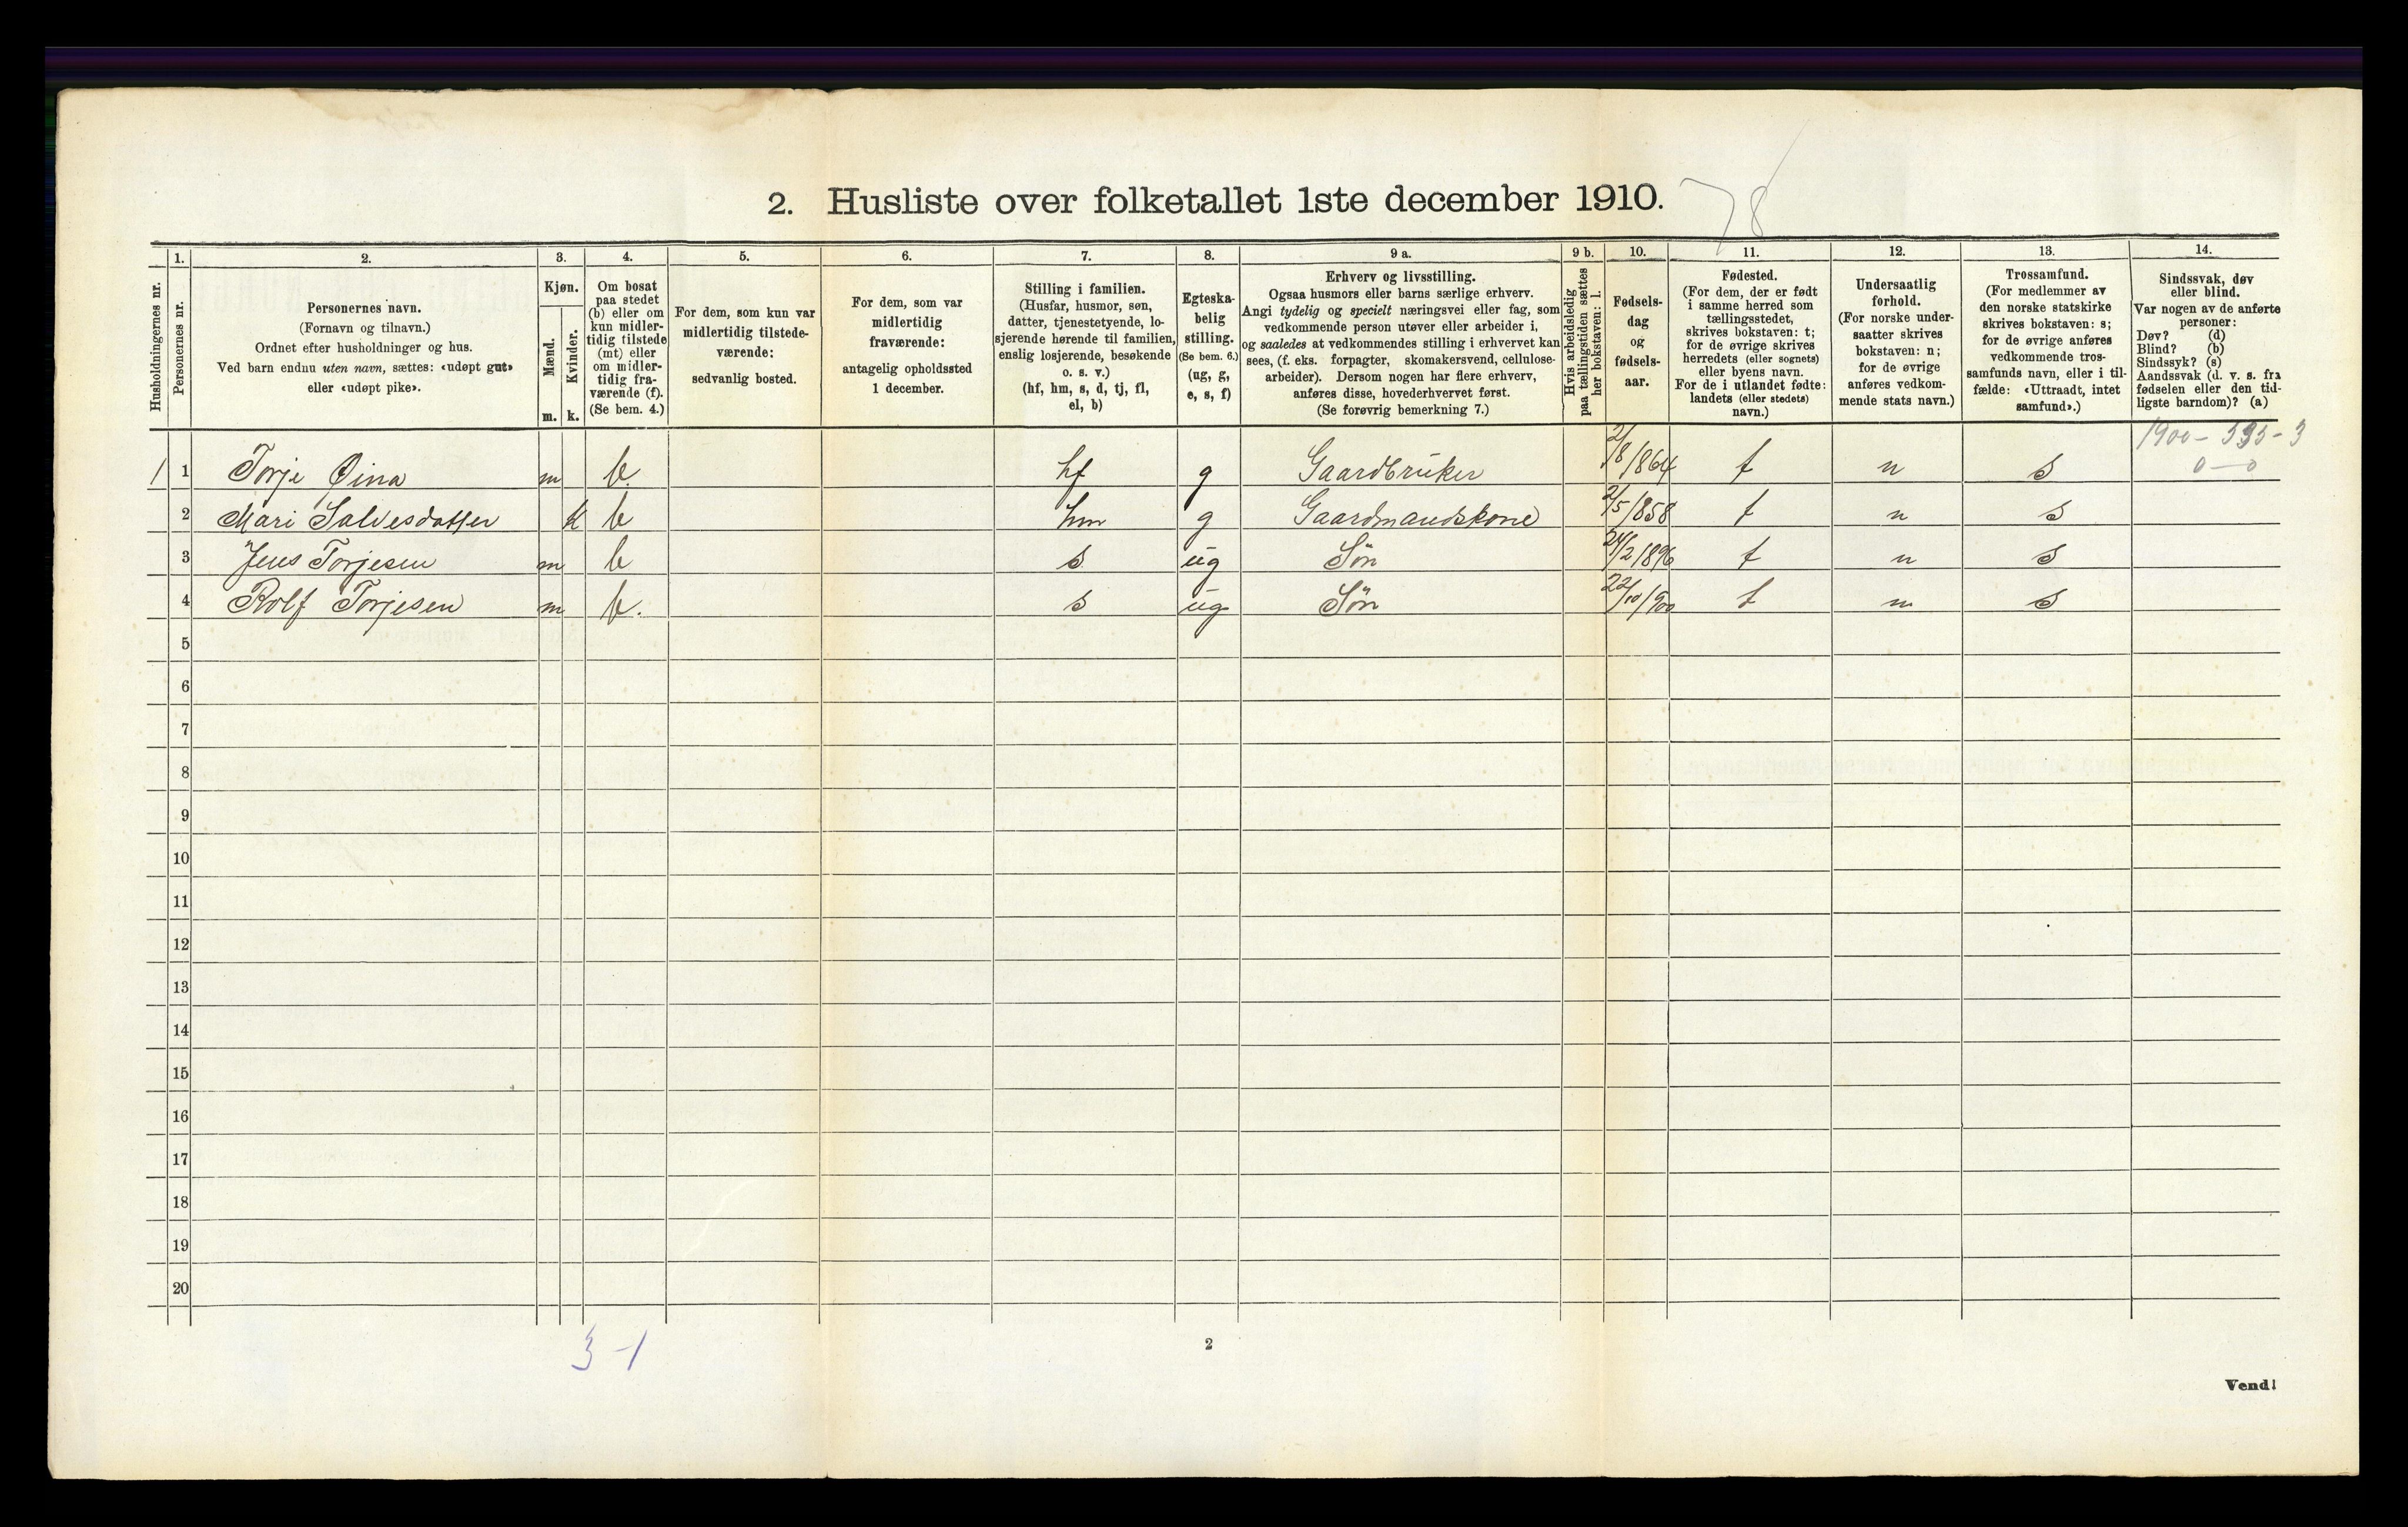 2. Husliste over folketallet 1ste december 1910.
78
Husholdningernes nr.
1.
Personernes nr.
2.
Personernes navn.
(Fornavn og tilnavn.)
Ordnet efter husholdninger og hus.
Ved barn endnu uten navn, sættes: «udøpt gut»
eller «udøpt pike».
3.
Kjøn.
Mænd.
m.
Kvinder.
k.
4.
Om bosat
paa stedet
(b) eller om
kun midler-
tidig tilstede
(mt) eller
om midler-
tidig fra-
værende (f).
(Se bem. 4.)
5.
For dem, som kun var
midlertidig tilstede-
værende:
sedvanlig bosted.
6.
For dem, som var
midlertidig
fraværende:
antagelig opholdssted
1 december.
7.
Stilling i familien.
(Husfar, husmor, søn,
datter, tjenestetyende, lo-
sjerende hørende til familien,
enslig losjerende, besøkende
o. s. v.)
(hf, hm, s, d, tj, fl,
el, b)
8.
Egteska-
belig
stilling.
(Se bem. 6.)
(ug, g,
e, s, f)
9 a.
Erhverv og livsstilling.
Ogsaa husmors eller barns særlige erhverv.
Angi tydelig og specielt næringsvei eller fag, som
vedkommende person utøver eller arbeider i,
og saaledes at vedkommendes stilling i erhvervet kan
sees, (f. eks. forpagter, skomakersvend, cellulose-
arbeider). Dersom nogen har flere erhverv,
anføres disse, hovederhvervet først.
(Se forøvrig bemerkning 7.)
9 b.
Hvis arbeidsledig
paa tællingstiden sættes
her bokstaven: l.
10.
Fødsels-
dag
og
fødsels-
aar.
11.
Fødested.
(For dem, der er født
i samme herred som
tællingsstedet,
skrives bokstaven: t;
for de øvrige skrives
herredets (eller sognets)
eller byens navn.
For de i utlandet fødte:
landets (eller stedets)
navn.)
12.
Undersaatlig
forhold.
(For norske under-
saatter skrives
bokstaven: n;
for de øvrige
anføres vedkom-
mende stats navn.)
13.
Trossamfund.
(For medlemmer av
den norske statskirke
skrives bokstaven: s;
for de øvrige anføres
vedkommende tros-
samfunds navn, eller i til-
fælde: «Uttraadt, intet
samfund».)
14.
Sindssvak, døv
eller blind.
Var nogen av de anførte
personer:
Døv? (d)
Blind? (b)
Sindssyk? (s)
Aandssvak (d. v. s. fra
fødselen eller den tid-
ligste barndom)? (a)
0—0
1 1 Torje Øina m b. hf g Gaardbruker 2/8/864 t n s
2 Mari Salvesdatter k b hm g Gaardmandskone 2/5/858 t n s
3 Jens Torjesen m b s ug Søn 24/2/896 t n s
4 Rolf Torjesen m b. s ug Søn 22/10/900 t n s
5
6
7
8
9
10
11
12
13
14
15
16
17
18
19
20
3-1
2
Vend!